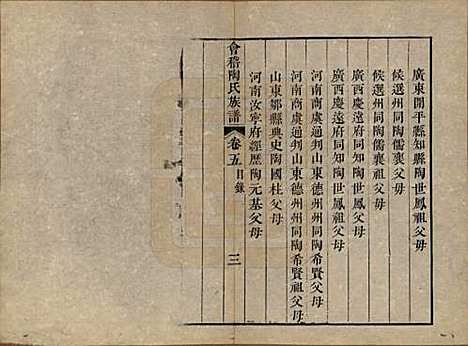 廣東開平縣知縣陶世鳳祖父母
候選州同陶儒襄祖父母
候選州同陶儒襄父母
廣西慶遠府同知陶世鳳祖父母
廣西慶遠府同知陶世鳳父母
河南商虞通判山東德州州同陶希賢祖父母
河南商虞通判山東德州州同陶希賢父母
山東鄒縣典史陶國柱父母
河南汝寧府經歷陶元基父母
會稽陶氏族譜
卷五目錄
三